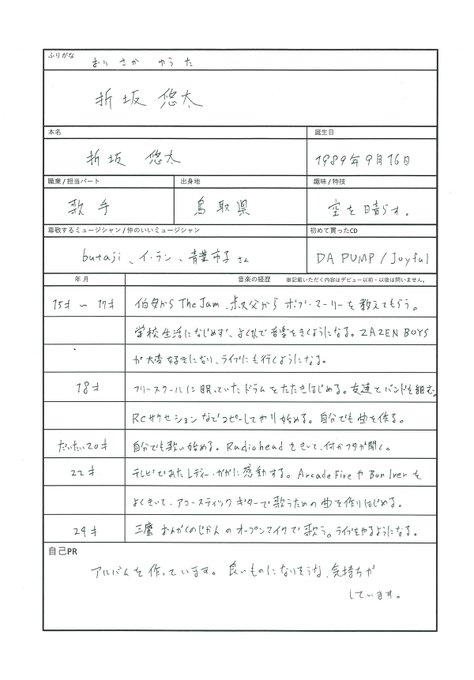 ふりがな
おりさか ゆうた
折坂 悠太
本名
誕生日
折坂 悠太
1989年9月16日
職業/担当パート
出身地
趣味/特技
歌手
鳥取県
空を晴らす。
尊敬するミュージシャン/仲のいいミュージシャン
初めて買ったCD
butaji、イ・ラン、青葉市子さん
DA PUMP / Joyful
年月
音楽の経歴 ※記載いただく内容はデビュー以前・以後は問いません。
15才〜17才
伯母からThe Jam、叔父からボブ・マーリーを教えてもらう。
学校生活になじめず、よく1人で音楽をきくようになる。ZAZEN BOYS
が大変好きになり、ライブにも行くようになる。
18才
フリースクールに眠っていたドラムをたたきはじめる。友達とバンドを組む。
RCサクセションなどコピーしてやり始める。自分でも曲を作る。
だいたい20才
自分でも歌い始める。Radioheadをきいて、何かフタが開く。
22才
テレビでみたレディー・ガガに感動する。Arcade FireやBon Iverを
よくきいて、アコースティックギターで歌うための曲を作りはじめる。
24才
三鷹おんがくのじかんのオープンマイクで歌う。ライブをやるようになる。
自己PR
アルバムを作っています。良いものになりそうな、気持ちが
しています。